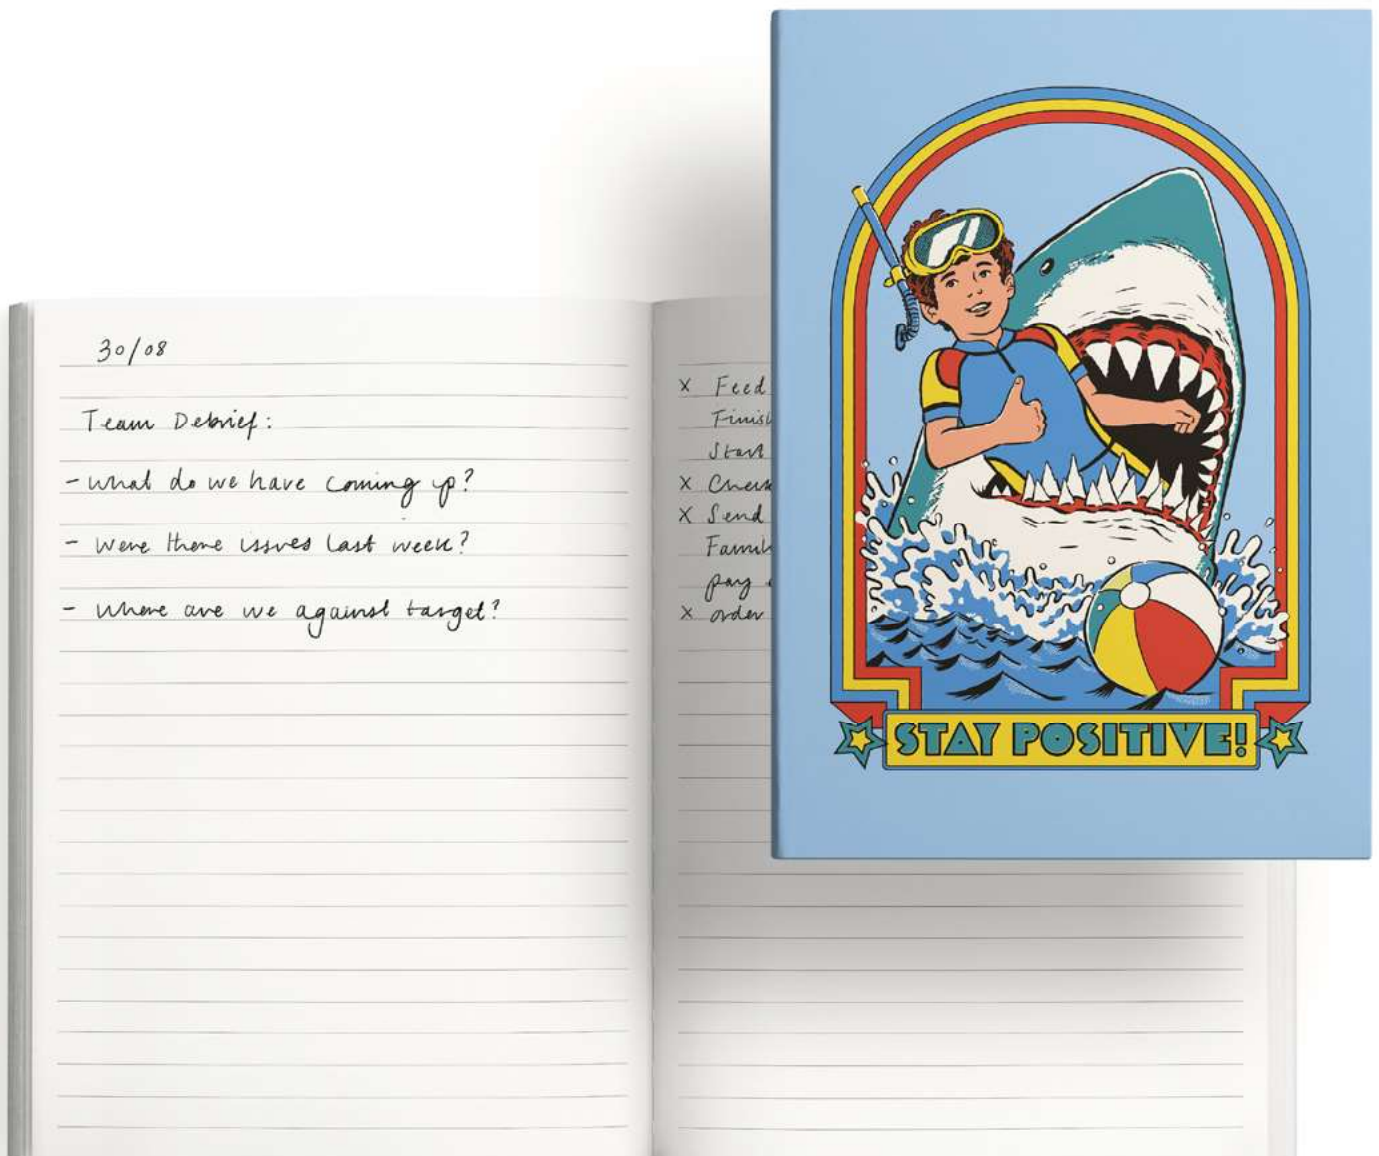 30/08
Team Debrief:
- what do we have coming up?
- Were there issues last week?
- where are we against target?
x Feed
Start
x Send
pay
x order
STAY POSITIVE!